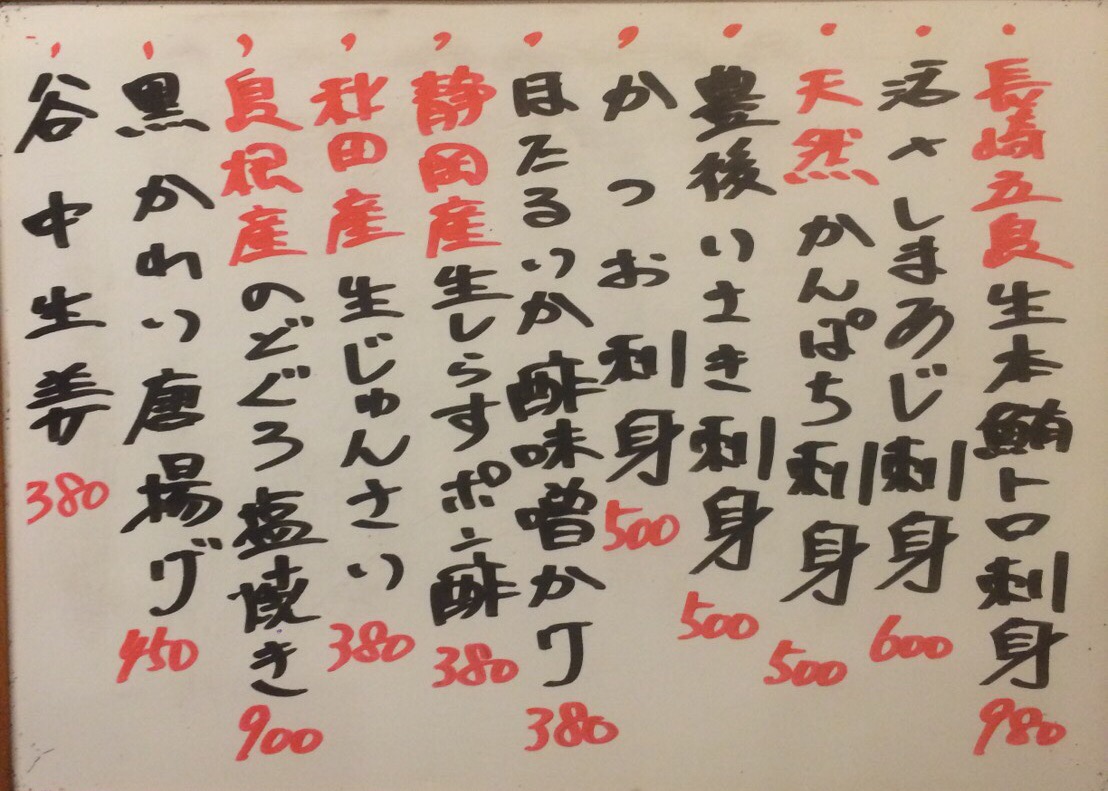 ・長崎五島生本鮪トロ刺身 980
・活〆しまあじ刺身 600
・天然かんぱち刺身 500
・豊後いさき刺身 500
・かつお刺身 500
・ほたるいか酢味噌かけ 380
・静岡産生しらすポン酢 380
・秋田産生じゅんさい 380
・島根産のどぐろ塩焼き 900
・黒かれい唐揚げ 450
・谷中生姜 380